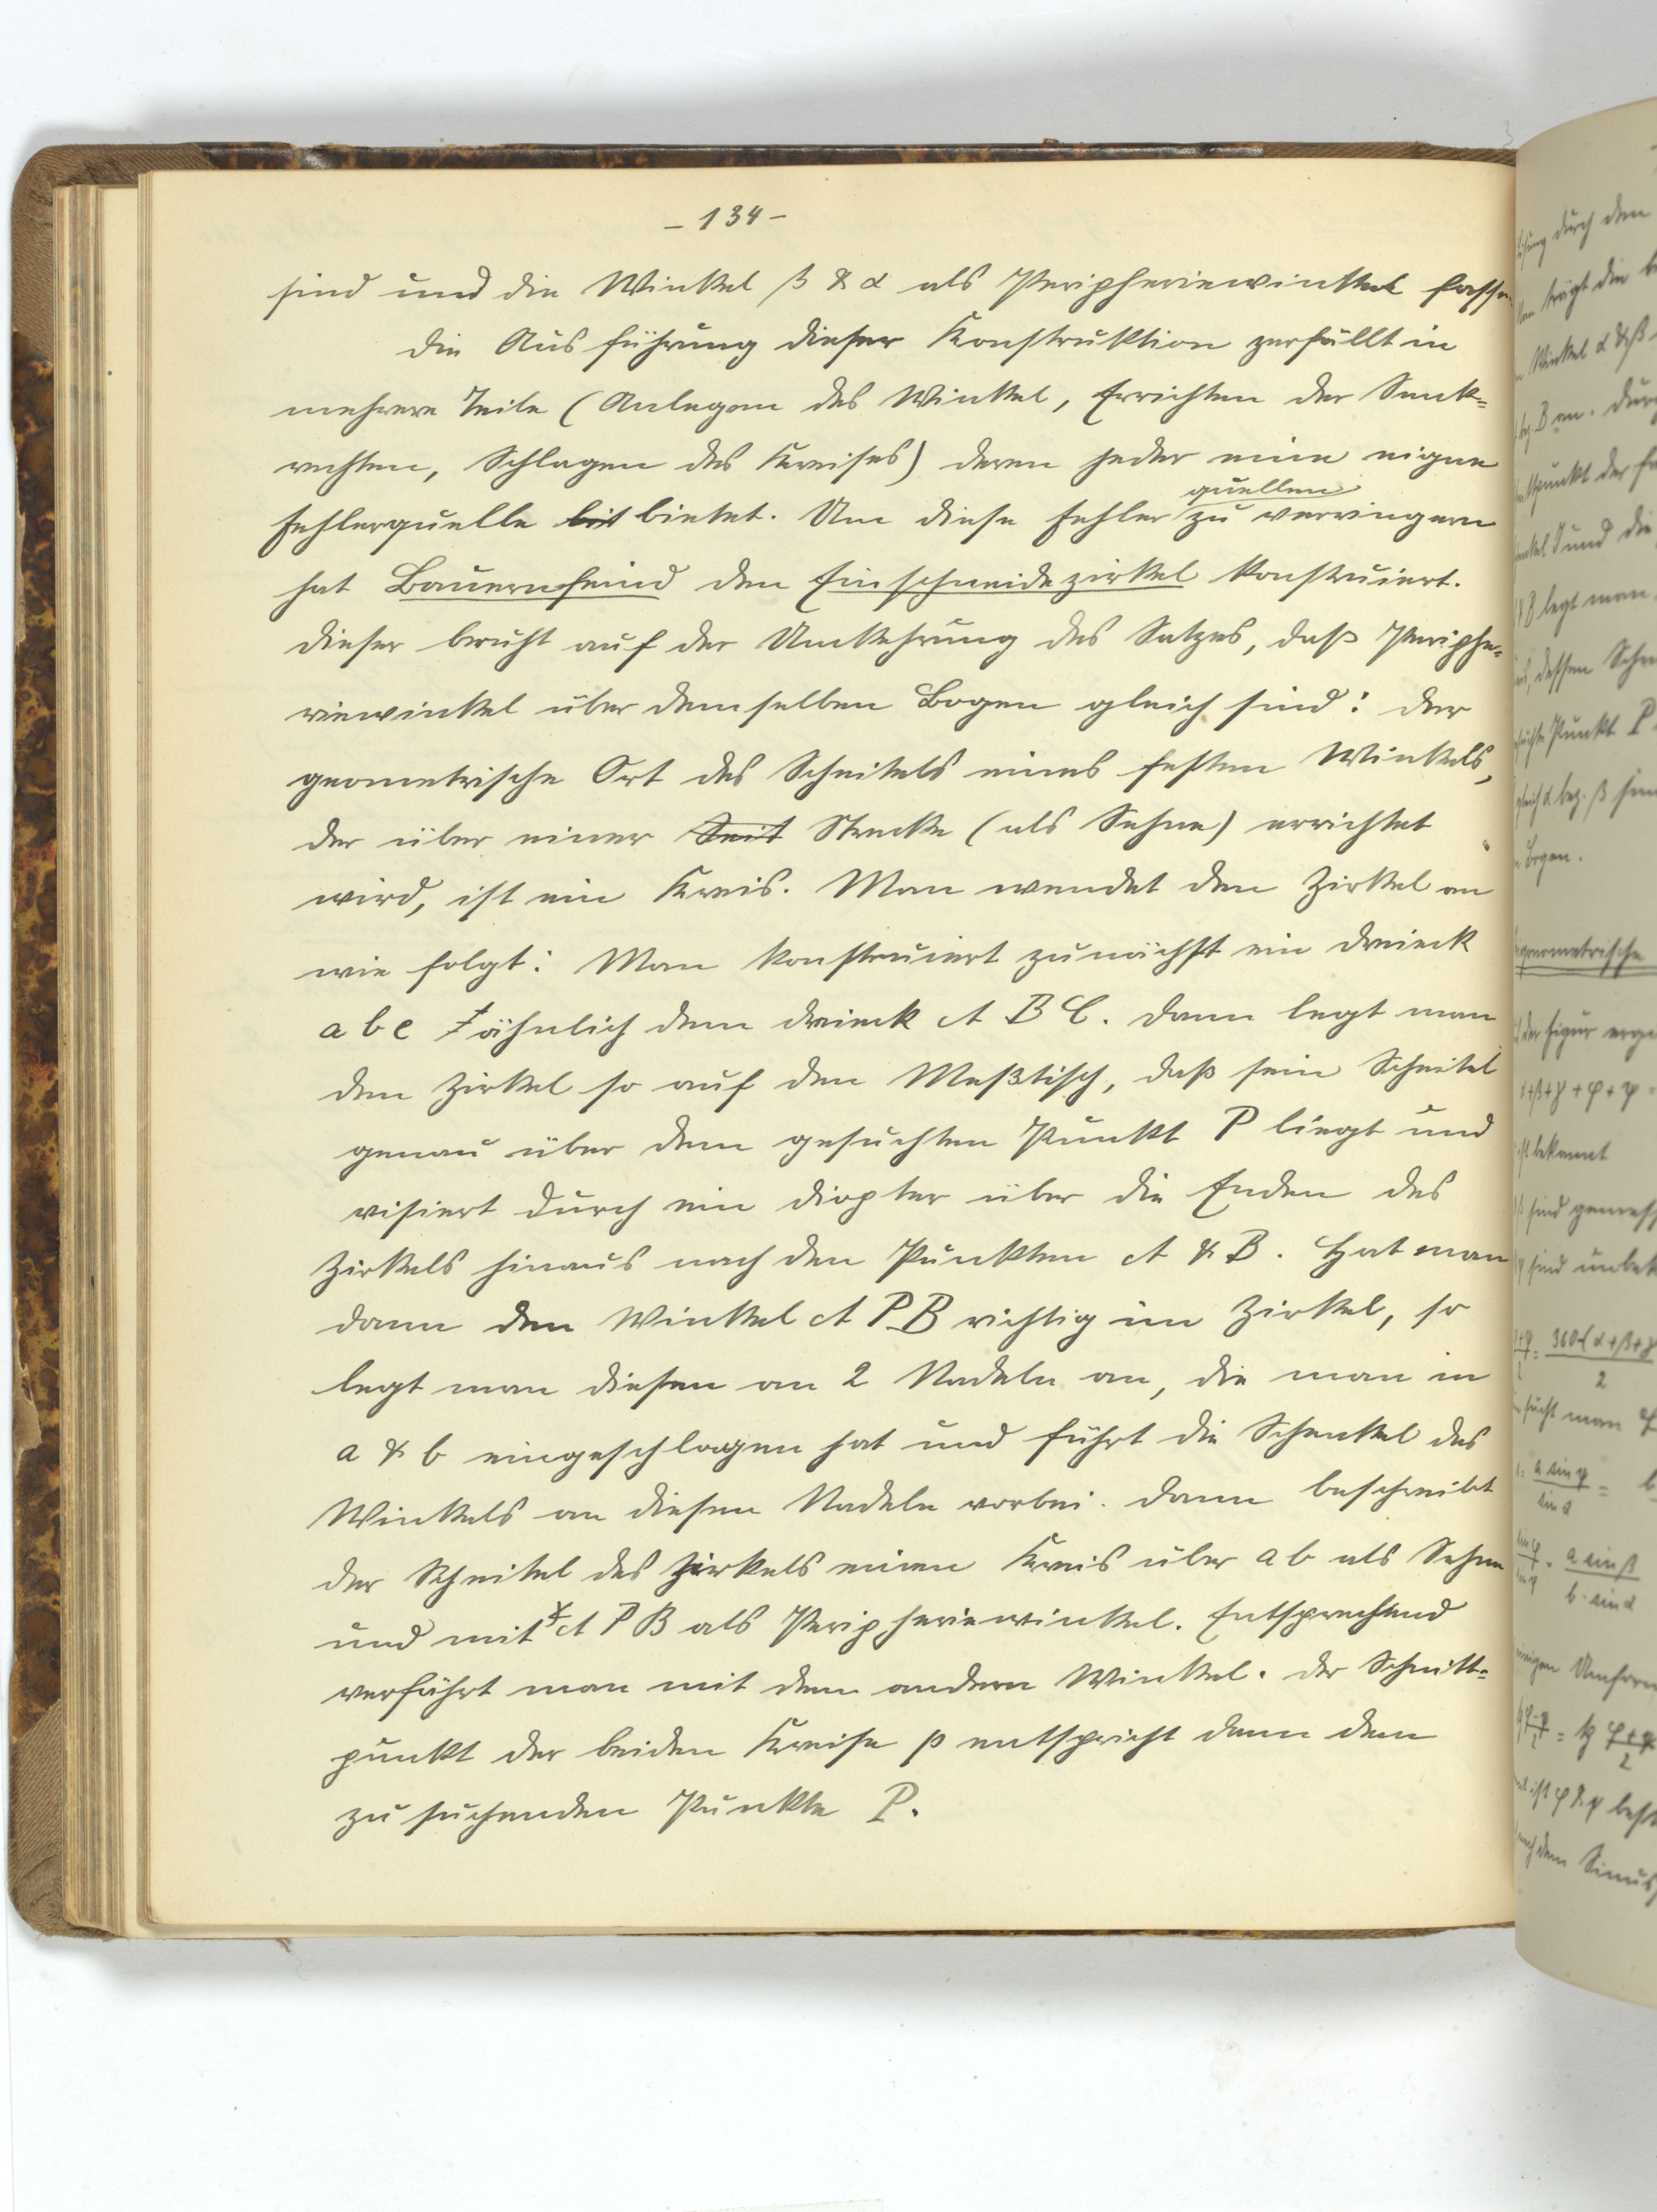 - 134 -
sind und die Winkel β & α als Peripheriewinkel fasse
Die Ausführung dieser Konstruktion zerfällt in
mehrere Teile (Anlegen des Winkel, Errichten der Senk=
rechten, Schlagen des Kreises) deren jeder eine eigne
quellen
Fehlerquelle bit bietet. Um diese Fehler zu verringern
hat Bauernfeind den Einschneidezirkel konstruiert.
Dieser beruht auf der Umkehrung des Satzes, daß Periphe=
riewinkel über demselben Bogen gleich sind: Der
geometrische Ort des Scheitels eines festen Winkels,
der über einer Seit Strecke (als Sehne) errichtet
wird, ist ein Kreis. Man wendet den Zirkel an
wie folgt: Man konstruiert zunächst ein Dreieck
a b c ähnlich dem Dreieck A B C. Dann legt man
den Zirkel so auf den Meßtisch, daß sein Scheitel
genau über dem gesuchten Punkt P liegt und
visiert durch ein Diopter über die Enden des
Zirkels hinaus nach den Punkten A & B. Hat man
dann den Winkel A P B richtig im Zirkel, so
legt man diesen an 2 Nadeln an, die man in
a & b eingeschlagen hat und führt die Schenkel des
Winkels an diesen Nadeln vorbei. Dann beschreibt
der Scheitel des Zirkels einen Kreis über a b als Sehne
und mit ∡ A P B als Peripheriewinkel. Entsprechend
verfährt man mit dem andern Winkel. Der Schnitt=
punkt der beiden Kreise p entspricht dann dem
zu suchenden Punkte P.
durch den
trägt die
Winkel α & β
B an. Dur
punkt der
und die
legt man
, dessen
Punkt P.
α bez. β
Bogen.
geometrische
der Figur
+β+γ+φ+ψ
bekannt
sind
sind
360-(α+β+γ
2
sucht man
a sin φ
sin α
a sin β
b · sin α
einigen
φ+ψ
2
nach dem Sinus